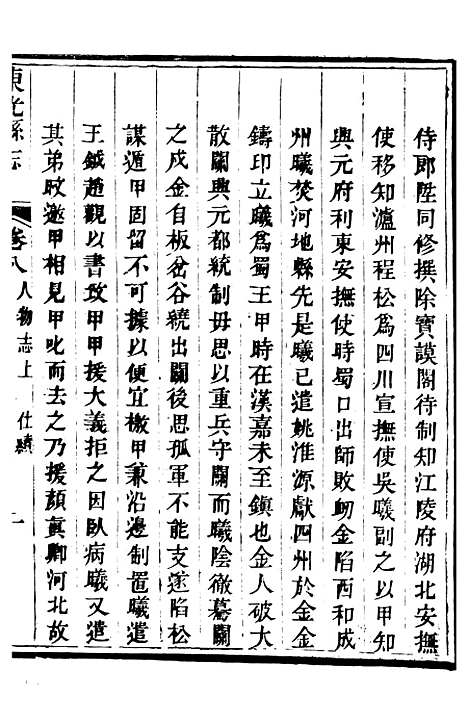 侍郎陞同修撰除寶謨閣待制知江陵府湖北安撫
使移知瀘州程松爲四川宣撫使吳曦副之以甲知
興元府利東安撫使時蜀口出師敗衂金陷西和成
州曦焚河地縣先是曦已遣姚淮源獻四州於金金
鑄印立曦爲蜀王甲時在漢嘉未至鎮也金人破大
散關興元都統制毋思以重兵守關而曦陰徹驀關
之戍金自板岔谷繞出關後思孤軍不能支遂陷松
謀遁甲固留不可據以便宜檄甲兼沿邊制置曦遣
王鉞趙觀以書攻甲甲援大義拒之因臥病曦又遣
其弟旼邀甲相見甲叱而去之乃援顏眞卿河北故
東光縣志
卷八人物志上
仕績
一